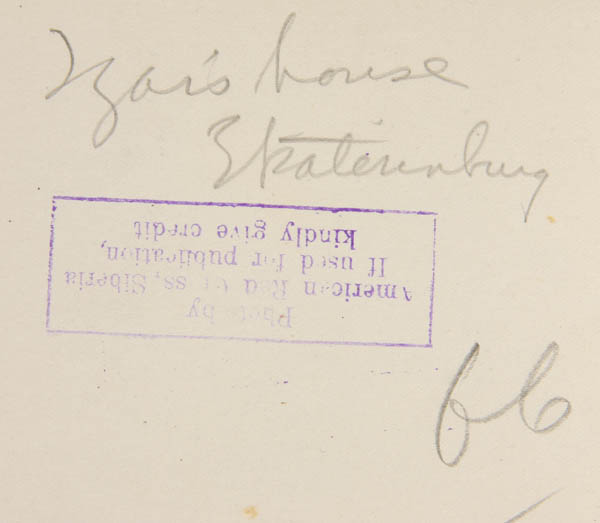 Tzar's house
Ekaterinburg
Photo by
American Red Cross, Siberia
If used for publication,
kindly give credit